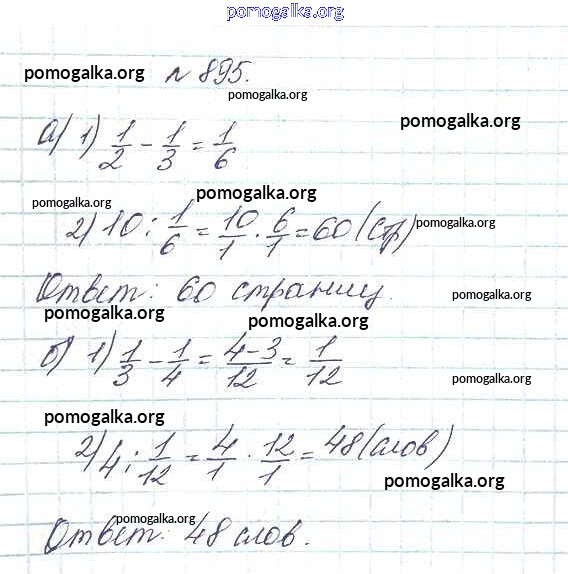 pomogalka.org
pomogalka.org № 895.
pomogalka.org
pomogalka.org
а) 1) 1/2 - 1/3 = 1/6
pomogalka.org pomogalka.org
pomogalka.org
2) 10 : 1/6 = 10/1 · 6/1 = 60 (стр)
Ответ: 60 страниц.
pomogalka.org
pomogalka.org pomogalka.org
б) 1) 1/3 - 1/4 = 4-3/12 = 1/12
pomogalka.org
pomogalka.org
2) 4 : 1/12 = 4/1 · 12/1 = 48 (слов)
pomogalka.org
pomogalka.org
Ответ: 48 слов.